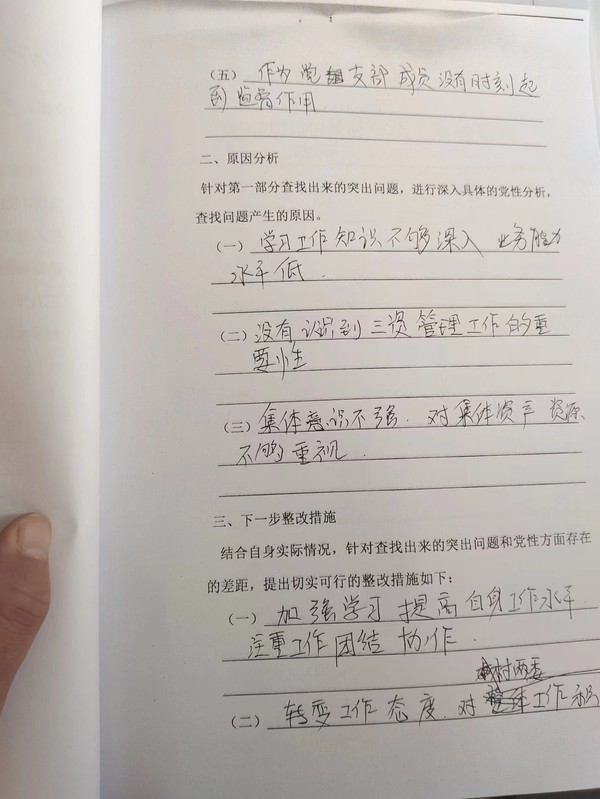 （五）作为党支部成员没有时刻起
到监督作用
二、原因分析
针对第一部分查找出来的突出问题，进行深入具体的党性分析，
查找问题产生的原因。
（一）学习工作知识不够深入 业务能力
水平低.
（二）没有认识到三资管理工作的重
要性
（三）集体意识不强.对集体资产资源
不够重视.
三、下一步整改措施
结合自身实际情况，针对查找出来的突出问题和党性方面存在
的差距，提出切实可行的整改措施如下：
（一）加强学习提高自身工作水平
注重工作团结协作.
村两委
（二）转变工作态度.对工作